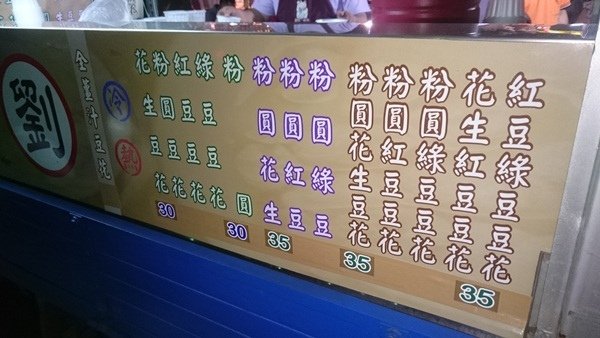 劉
全薑汁豆坑
冷
熱
花生豆花
粉圓豆花
紅豆豆花
綠豆豆花
30
粉圓
30
粉圓花生
粉圓紅豆
粉圓綠豆
35
粉圓花生豆花
粉圓紅豆豆花
粉圓綠豆豆花
35
花生紅豆豆花
紅豆綠豆豆花
35